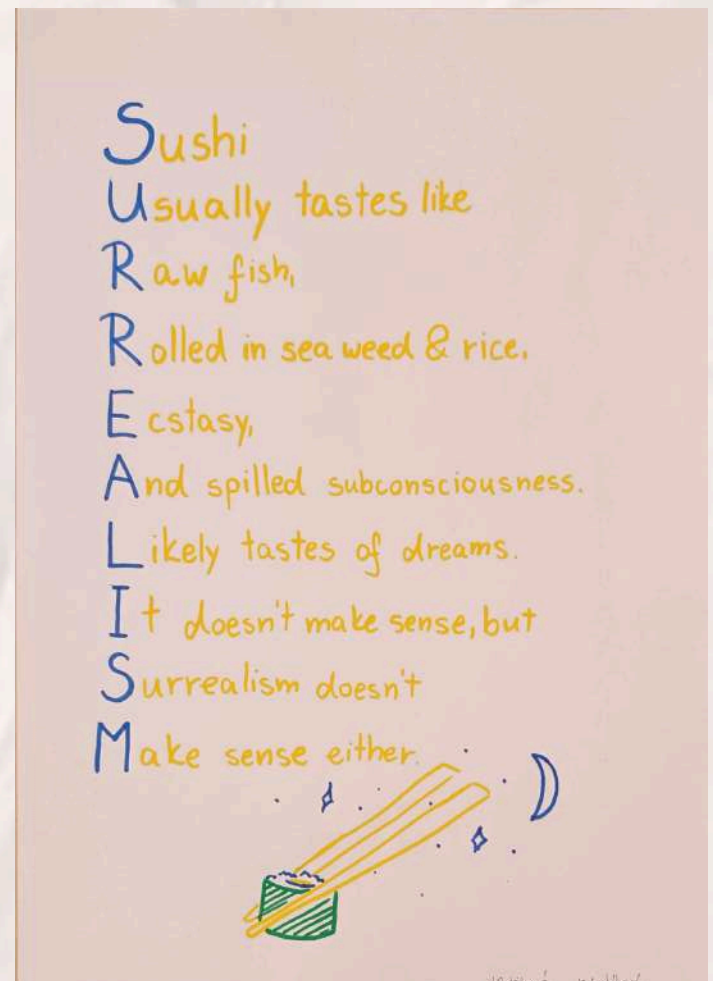 Sushi
Usually tastes like
Raw fish,
Rolled in sea weed & rice.
Ecstasy,
And spilled subconsciousness.
Likely tastes of dreams.
It doesn't make sense, but
Surrealism doesn't
Make sense either.